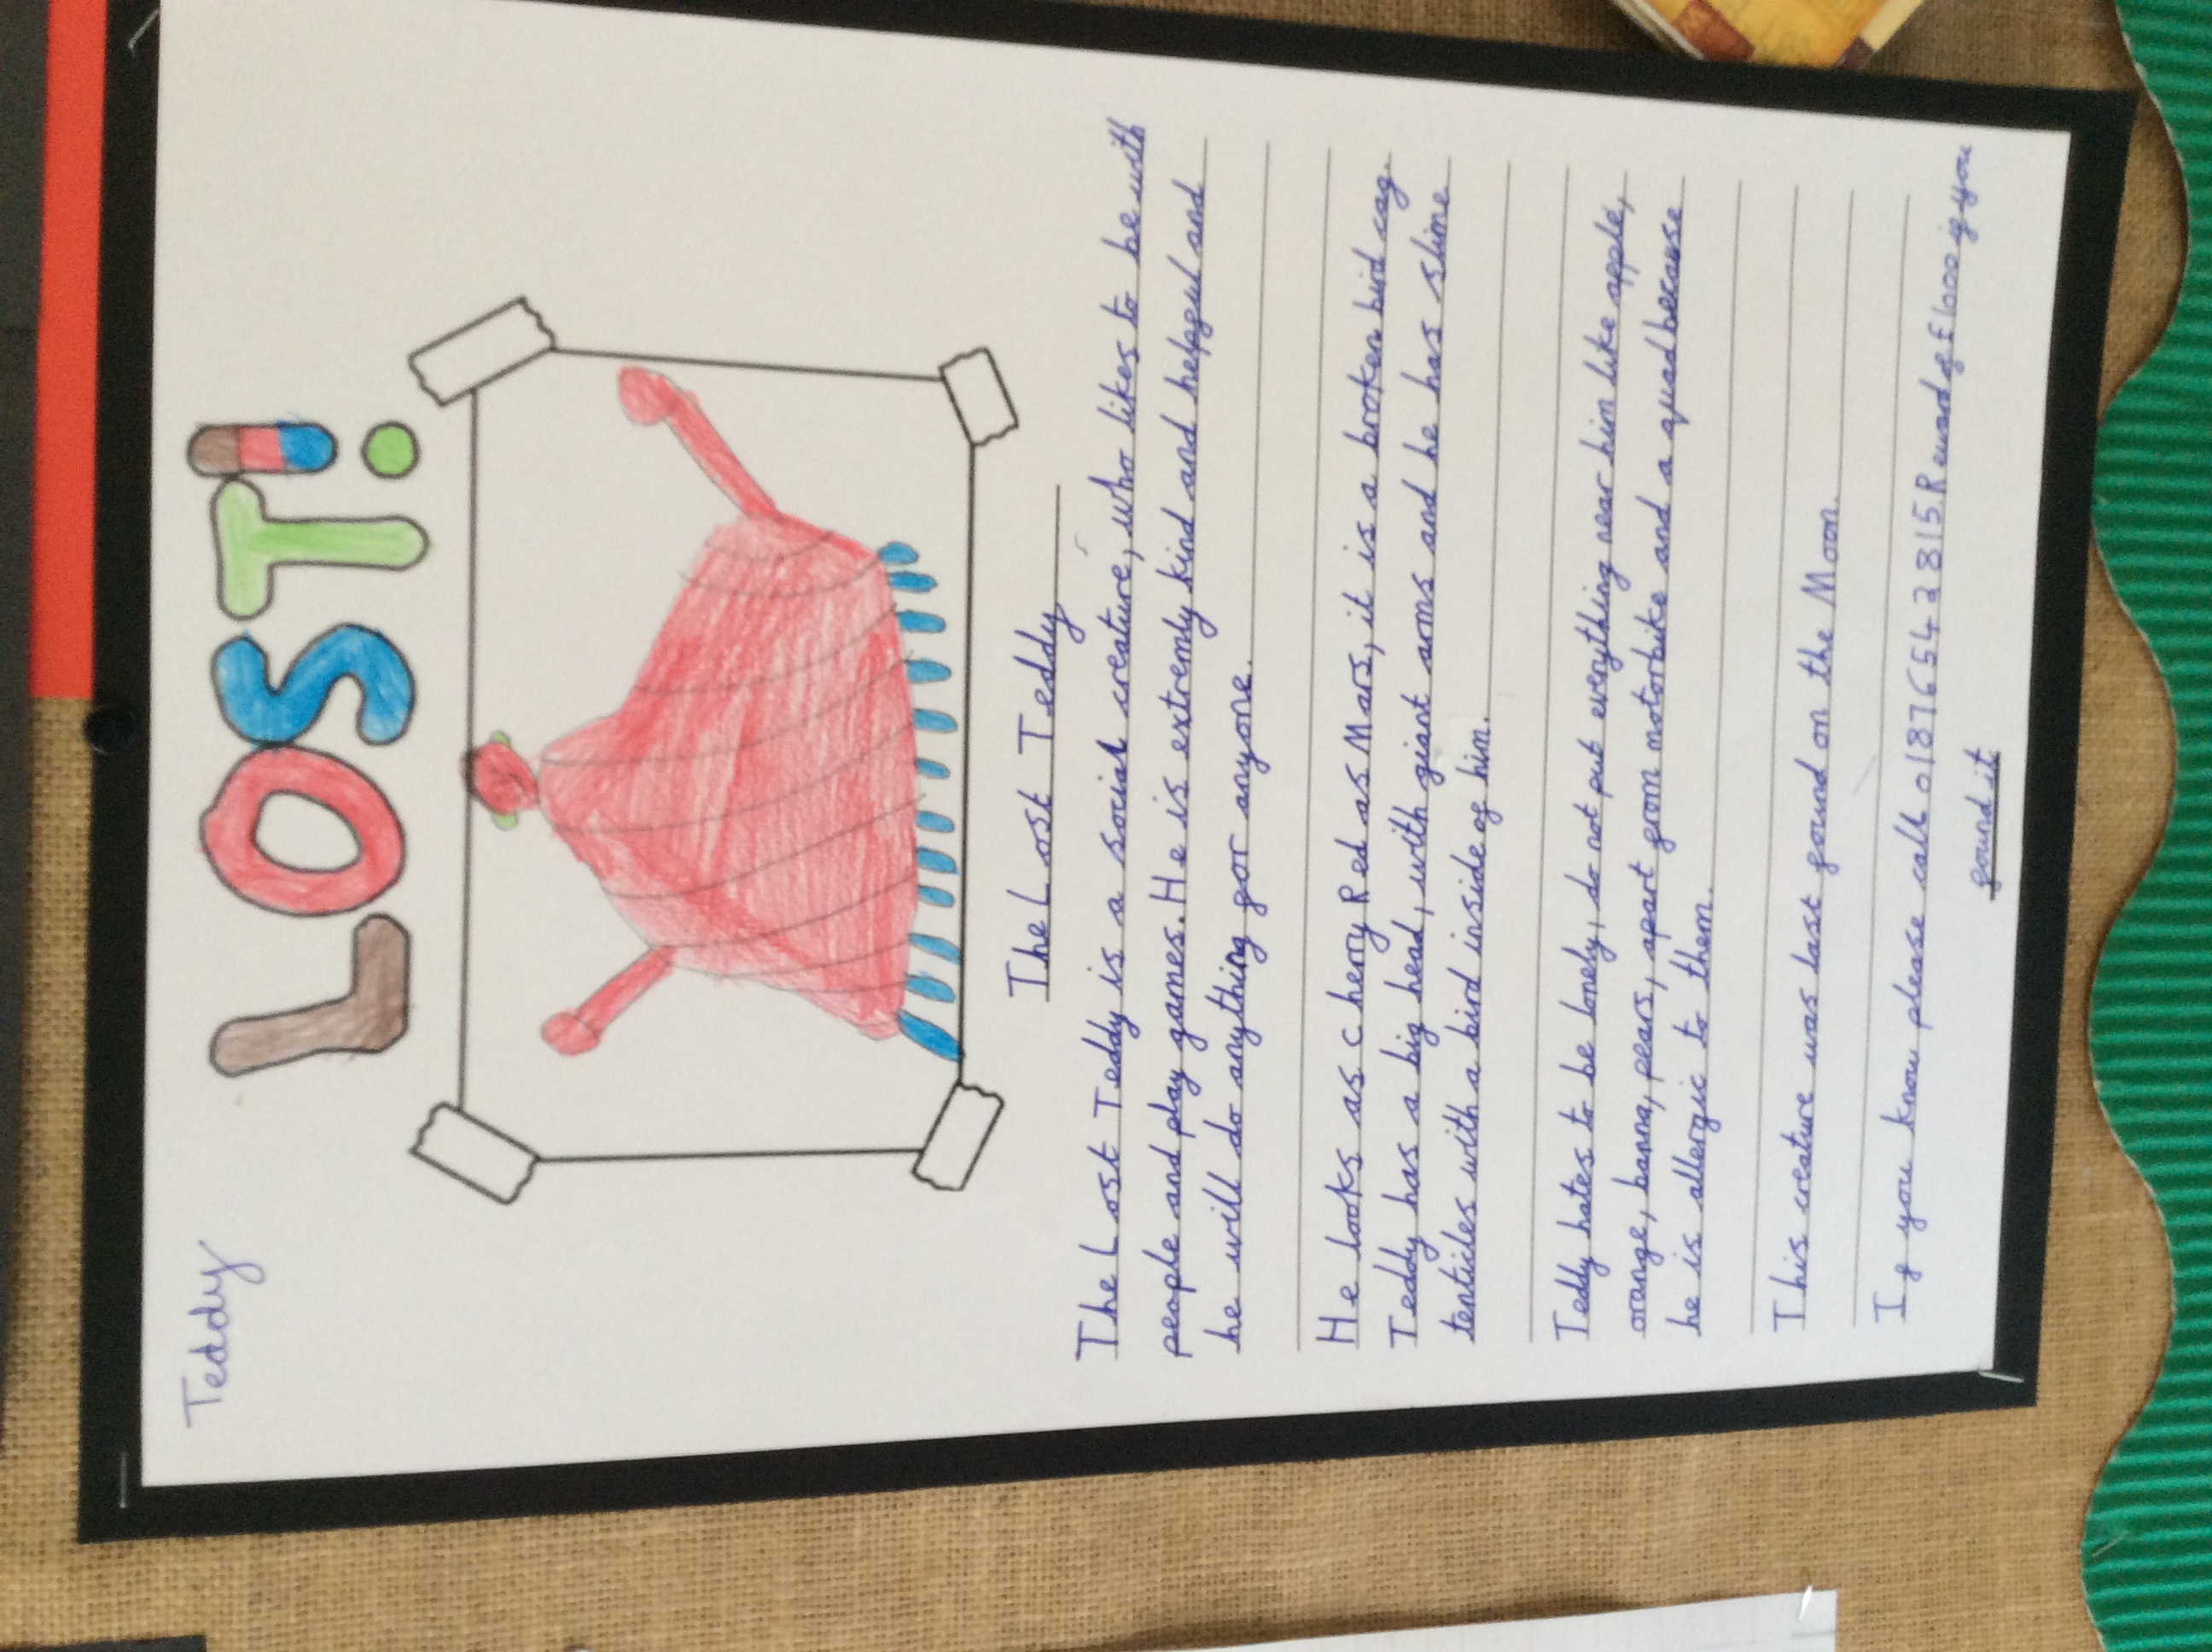 Teddy
LOST!
The Lost Teddy
The Lost Teddy is a social creature, who likes to be with
people and play games. He is extremly kind and helpful and
he will do anything for anyone.
He looks as cherry Red as Mars, it is a broken bird cag.
Teddy has a big head, with giant arms and he has slime
tenticles with a bird inside of him.
Teddy hates to be lonely, do not put everything near him like apple,
orange, banna, pears, apart from motorbike and a quad because
he is allergic to them.
This creature was last found on the Moon.
If you know please call 01876542815 Reward of £100 if you
found it